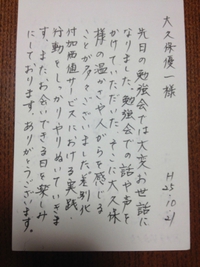 大久保優一様
H25.10.21
先日の勉強会では大変お世話に
なりました。勉強会での話や声を
かけていただいた。そこに大久保
様の温かさや人がらを感じる
ことが多々ございました。差別化
付加価値サービスにおける実践
行動をしっかりやりぬいていきま
す。またお会いできる日を楽しみ
にしております。ありがとうございます。